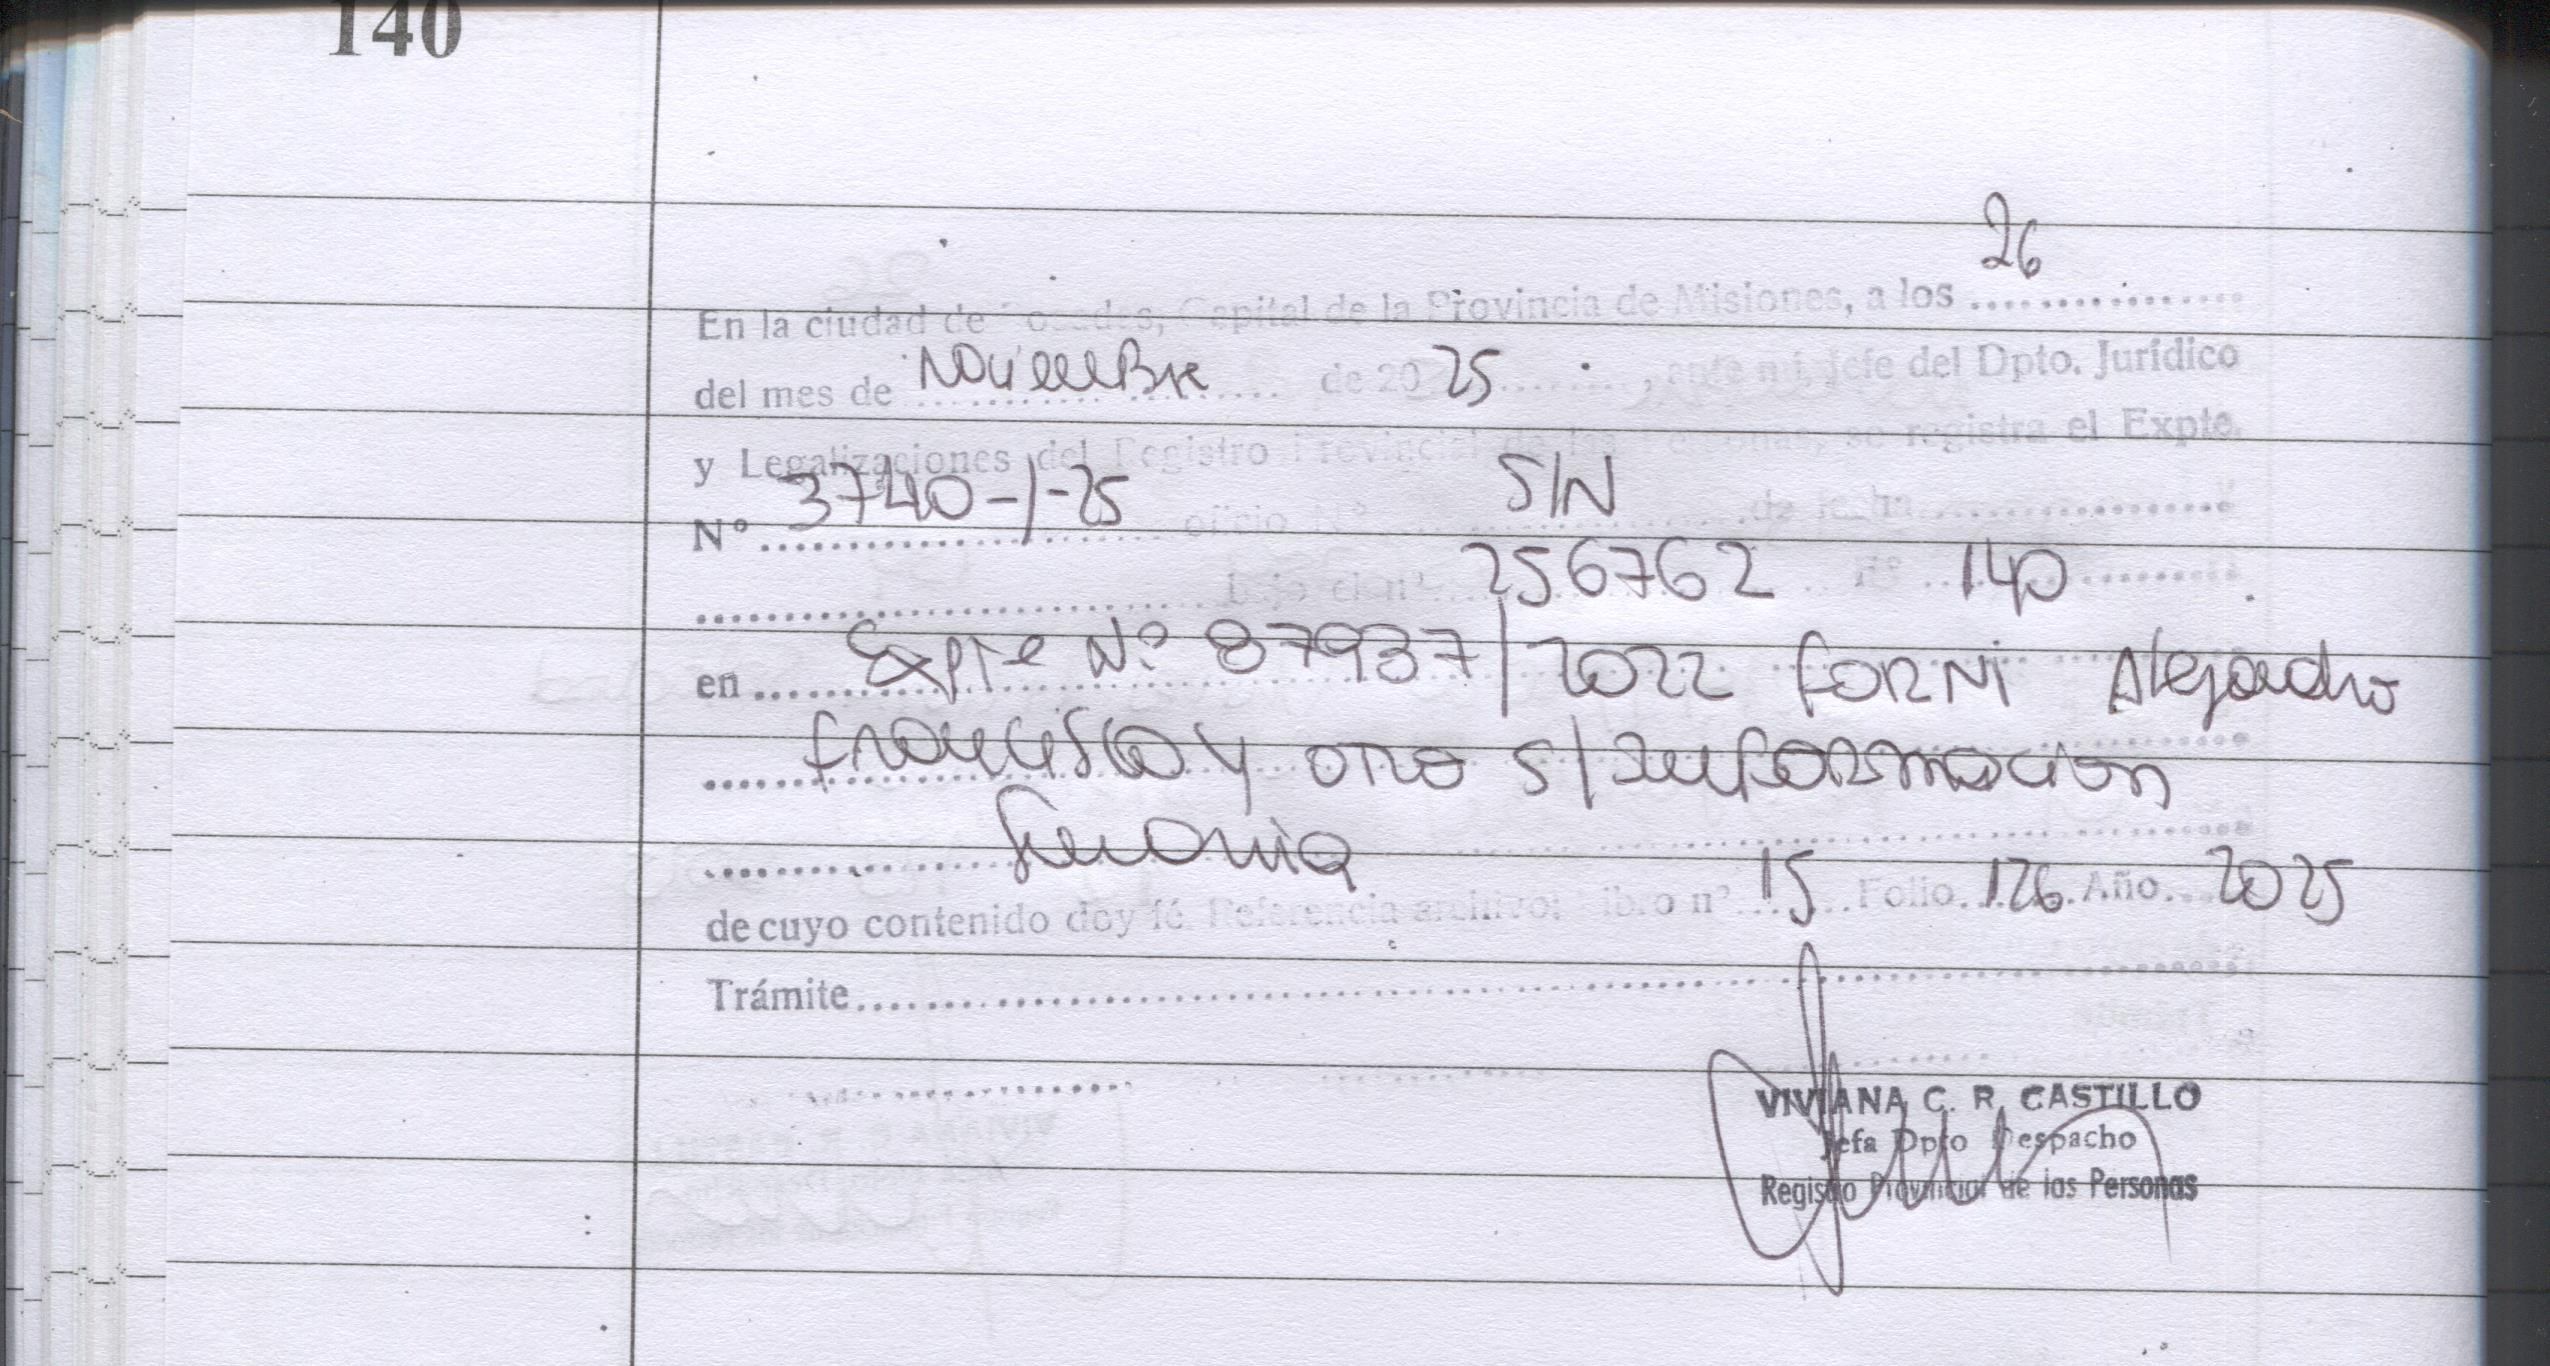 140
26
En la ciudad de Posadas, Capital de la Provincia de Misiones, a los ...............
del mes de Noviembre de 20 25 ........, ante mi, jefe del Dpto. Jurídico
y Legalizaciones del Registro Provincial de las Personas, se registra el Expte.
Nº 3740-/-25 oficio Nº S/N de fecha
bajo el nº 256762 nº 140
en Expte Nº 87937/2022 FORNI Alejandro
Francisco y otro s/Informacion
Sumaria
de cuyo contenido doy fé. Referencia archivo: Libro nº 15 Folio 126 Año 2025
Trámite
VIVIANA C. R. CASTILLO
Jefa Dpto Despacho
Registro Provincial de las Personas